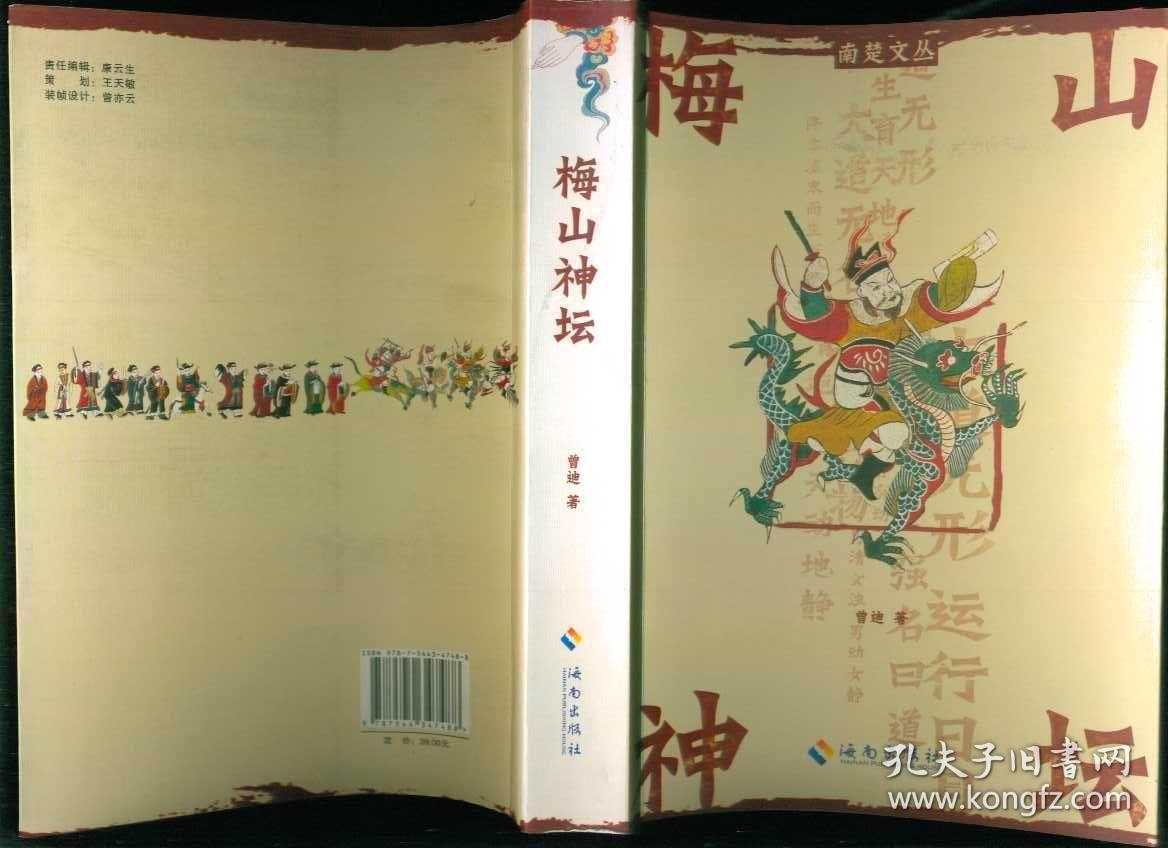 责任编辑：康云生
策 划：王天敏
装帧设计：曾亦云
ISBN 978-7-5443-4748-8
9 787544 347488
定 价：39.00元
梅山神坛
曾迪 著
海南出版社
HAINAN PUBLISHING HOUSE
南楚文丛
梅山
神坛
大道无形
生育天地
大道无
运行日
强名曰道
动地静
清女浊
男动女静
降本流末而生
曾迪 著
海南出版社
HAINAN PUBLISHING HOUSE
孔夫子旧书网
www.kongfz.com